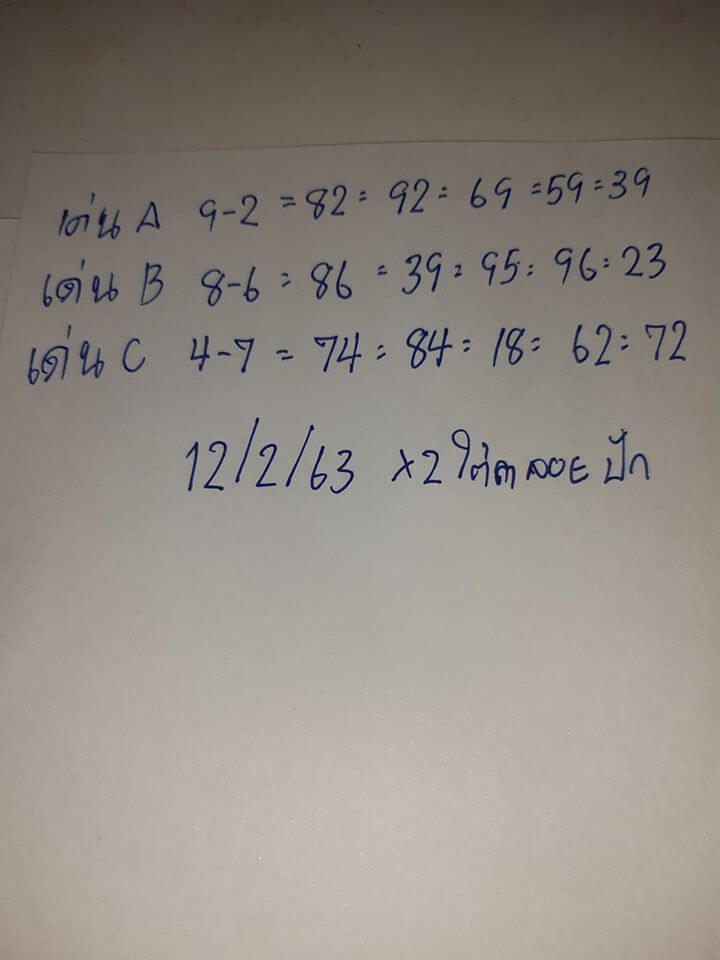 เด่น A 9-2 = 82 = 92 = 69 = 59 = 39
เด่น B 8-6 = 86 = 39 = 95 = 96 = 23
เด่น C 4-7 = 74 = 84 = 18 = 62 = 72
12/2/63 x2 ปัก